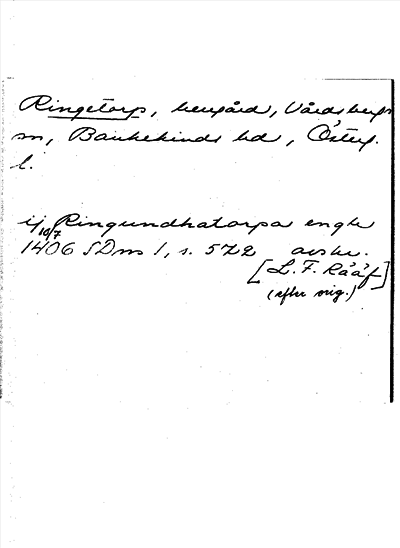 Ringetorp, herrgård, Vårdsbergs
sn, Bankekinds hd, Österg.
l.
ij Ringundhatorpa enghr
10/7
1406 SDns 1, s. 572 avskr.
[L. F. Rääf]
(efter orig.)